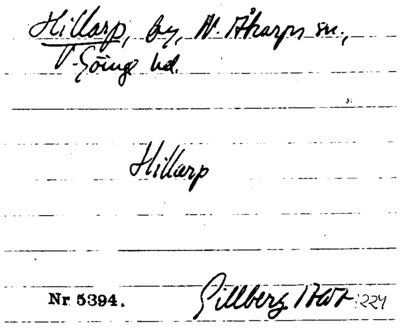 Hillarp, by, N. Åkarps sn.,
V. Göinge hd.
Hillarp
Nr 5394. Gillberg 224